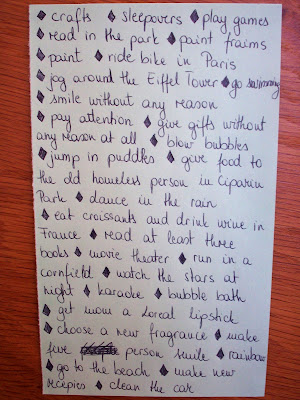 ♦ crafts ♦ sleepovers ♦ play games
♦ read in the park ♦ paint fraims
♦ paint ♦ ride bike in Paris
♦ jog around the Eiffel Tower ♦ go swimming
♦ smile without any reason
♦ pay attention ♦ give gifts without
any reason at all ♦ blow bubbles
♦ jump in puddles ♦ give food to
the old homeless person in Ciparin
Park ♦ dance in the rain
♦ eat croissants and drink wine in
France ♦ read at least three
books ♦ movie theater ♦ run in a
cornfield ♦ watch the stars at
night ♦ karaoke ♦ bubble bath
♦ get mom a Loreal lipstick
♦ choose a new fragrance ♦ make
five person smile ♦ rainbow
♦ go to the beach ♦ make new
recepies ♦ clean the car